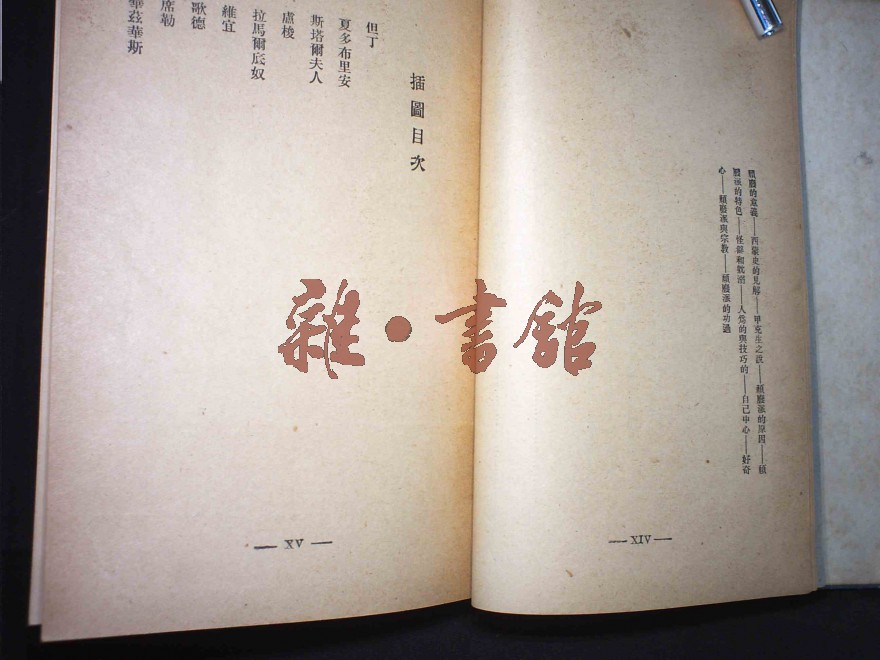 頹廢的意義——西蒙史的見解——甲克生之說——頹廢派的原因——頹
廢派的特色——怪僻和飢渴——人爲的與技巧的——自己中心——好奇
心——頹廢派與宗教——頹廢派的功過
— XIV —
插圖目次
但丁
夏多布里安
斯塔爾夫人
盧梭
拉馬爾底奴
維宜
歌德
席勒
華茲華斯
— XV —
雜·書館